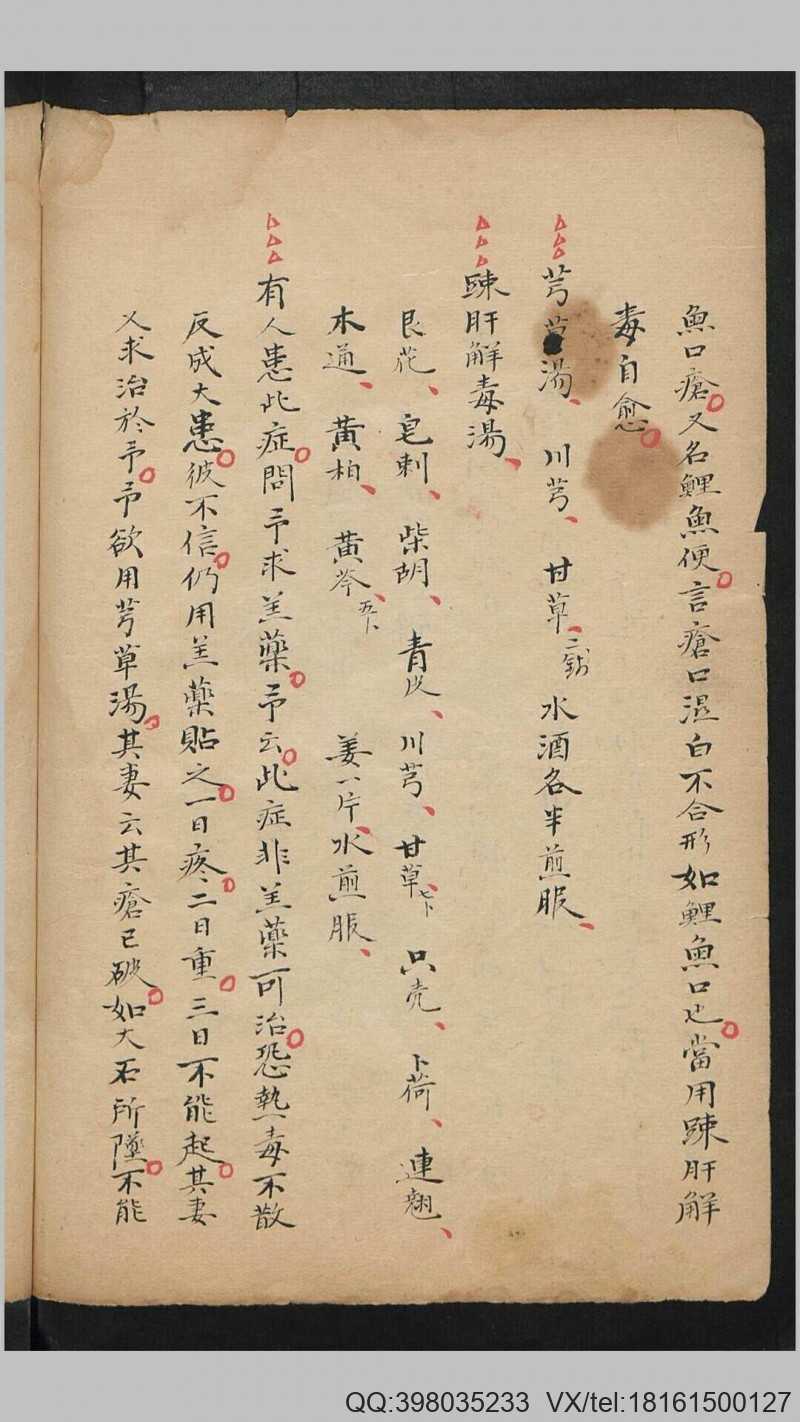 魚口瘡又名鯉魚便言瘡口濕白不合形如鯉魚口也當用踈肝解
毒自愈
芎草湯、川芎、甘草、二錢 水酒各半煎服、
踈肝解毒湯、
艮花、皂刺、柴胡、青皮、川芎、甘草、七卜 只壳、卜荷、連翹、
木通、黄柏、黄芩、五卜 姜一片、水煎服、
有人患此症問予求羔藥予云此症非羔藥可治恐熱毒不散
反成大患彼不信仍用羔藥貼之一日疼二日重三日不能起其妻
又求治於予予欲用芎草湯其妻云其瘡已破如大石所墜不能
QQ:398035233 VX/tel:18161500127